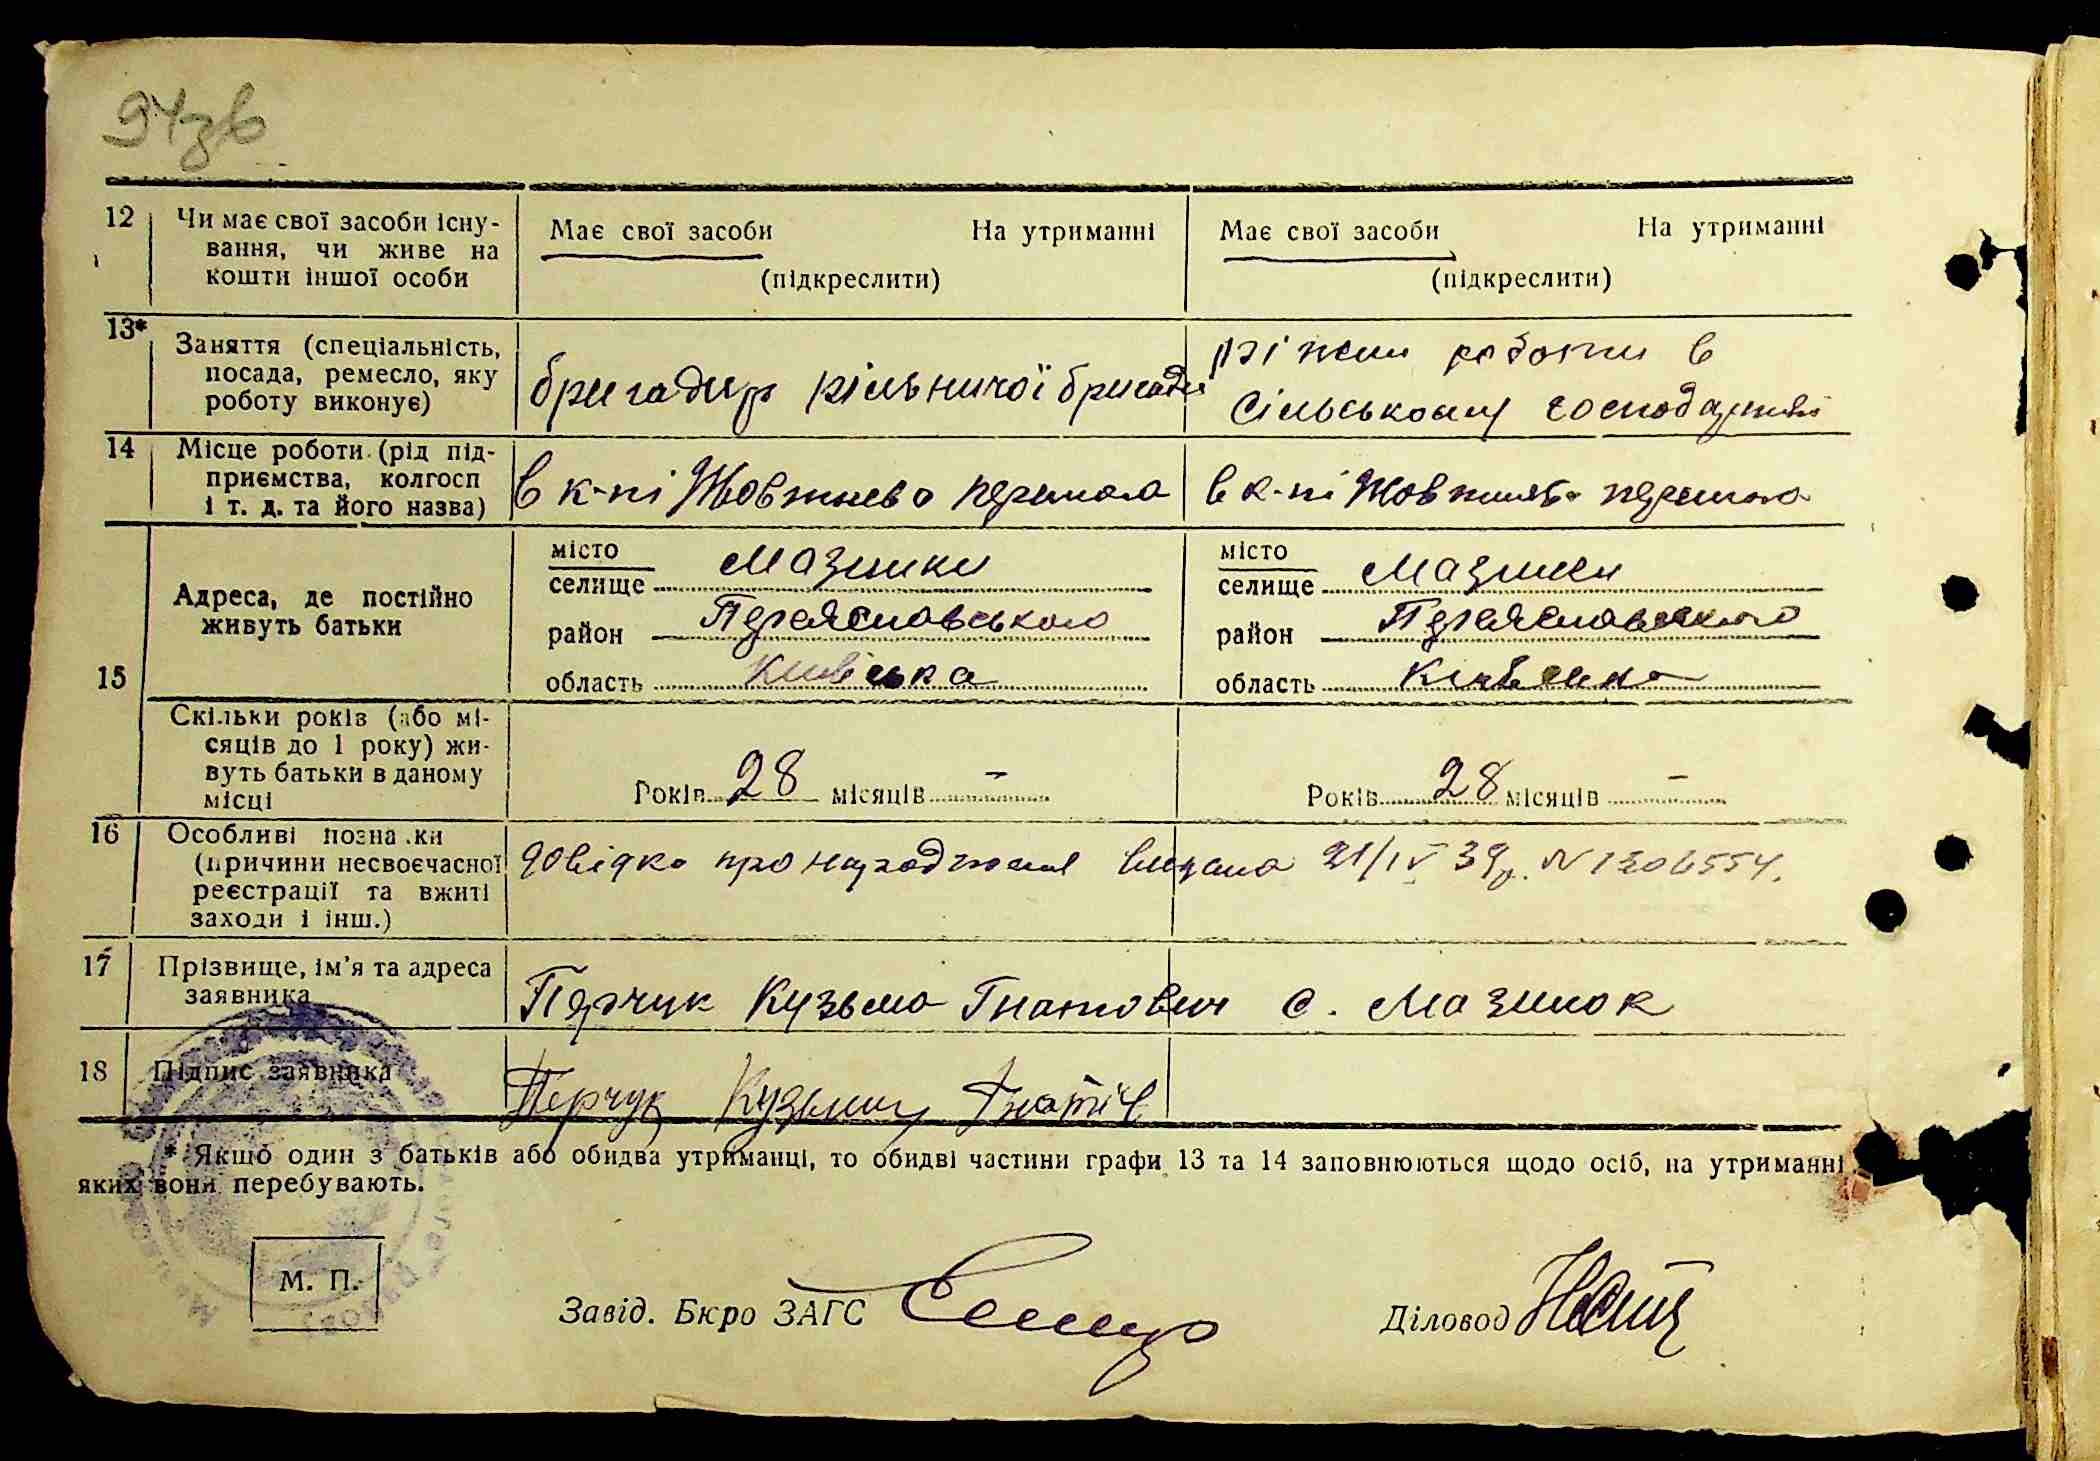 94зв
12 Чи має свої засоби існу-
вання, чи живе на
кошти іншої особи
Має свої засоби На утриманні
(підкреслити)
Має свої засоби На утриманні
(підкреслити)
13* Заняття (спеціальність,
посада, ремесло, яку
роботу виконує)
бригадир рільничої бригади
різні роботи в
сільському господарстві
14 Місце роботи (рід під-
приємства, колгосп
і т. д. та його назва)
в к-пі Жовтнева перемога
в к-пі Жовтнева перемога
15 Адреса, де постійно
живуть батьки
місто
селище Мазинки
район Переяславського
область Київська
місто
селище Мазинки
район Переяславського
область Київська
Скільки років (або мі-
сяців до 1 року) жи-
вуть батьки в даному
місці
Років 28 місяців —
Років 28 місяців —
16 Особливі познаки
(причини несвоєчасної
реєстрації та вжиті
заходи і інш.)
довідка про народження видана 21/IV 39р. N 1306554.
17 Прізвище, ім'я та адреса
заявника
Перчук Кузьма Гнатович с. Мазинок
18 Підпис заявника
Перчук Кузьма
* Якщо один з батьків або обидва утриманці, то обидві частини графи 13 та 14 заповнюються щодо осіб, на утриманні
яких вони перебувають.
М. П.
Завід. Бюро ЗАГС
Діловод